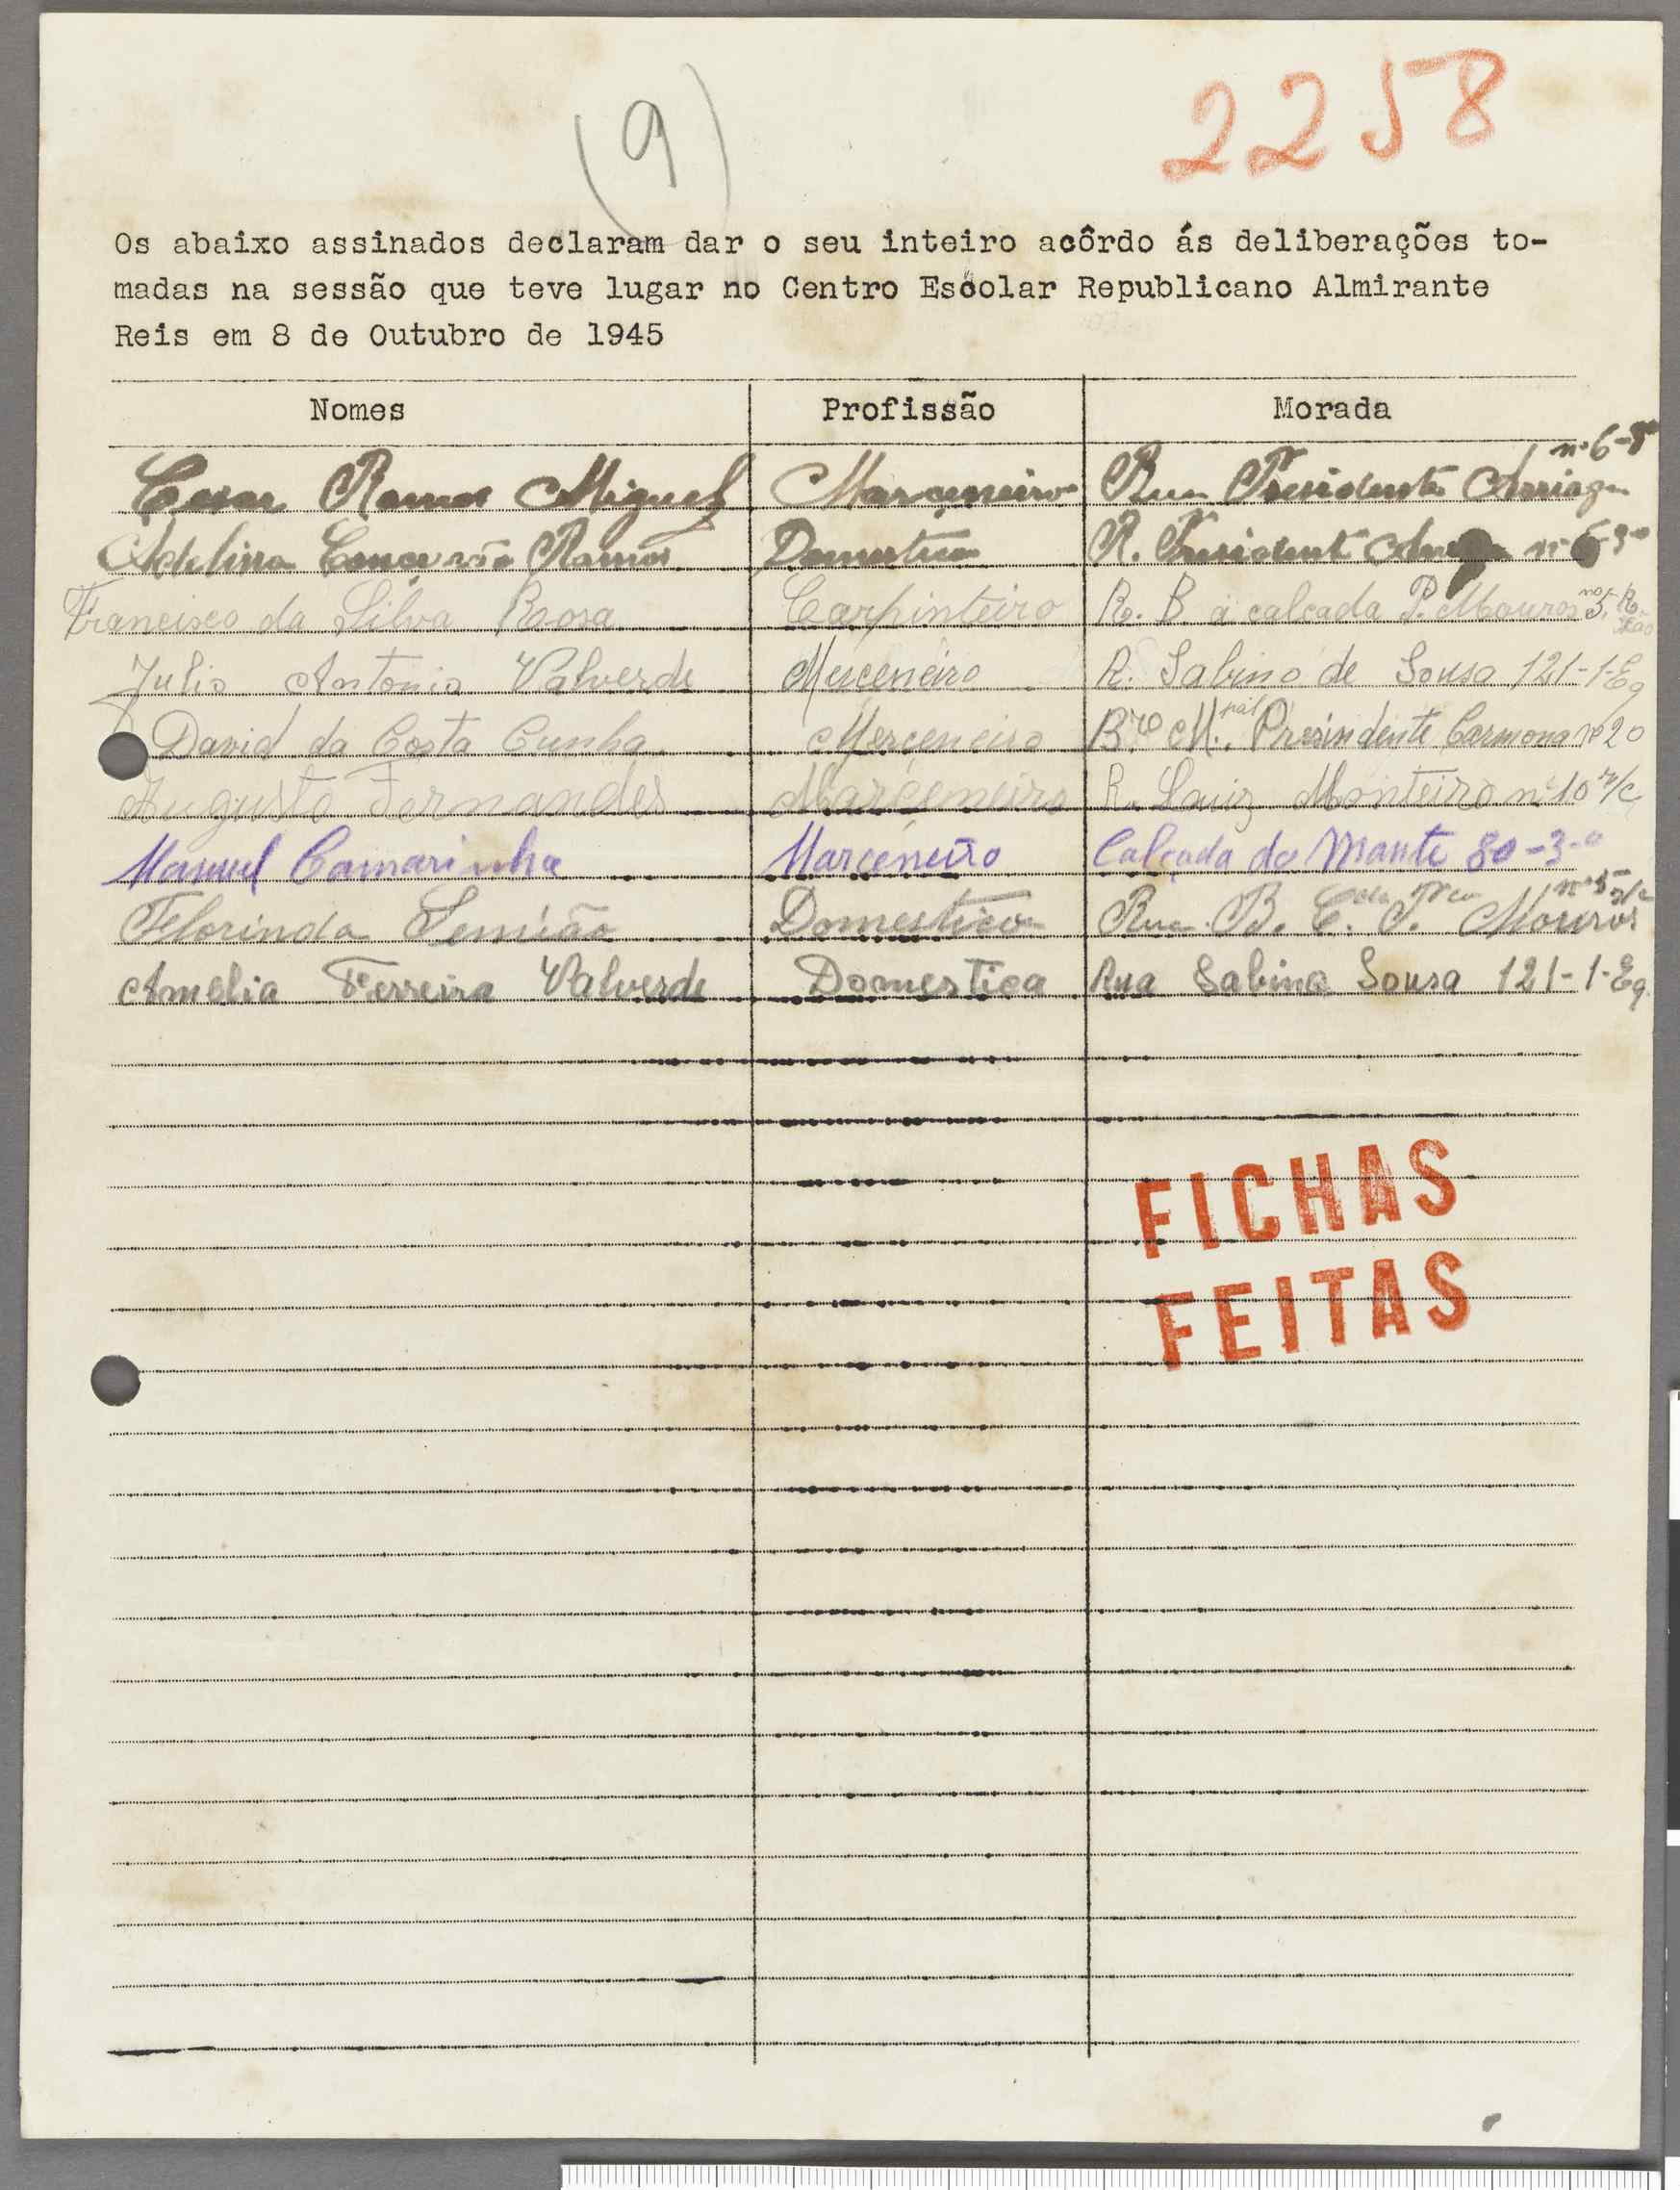 (9)
2258
Os abaixo assinados declaram dar o seu inteiro acôrdo ás deliberações to-
madas na sessão que teve lugar no Centro Escolar Republicano Almirante
Reis em 8 de Outubro de 1945
Nomes Profissão Morada
Cesar Ramos Miguel Marceneiro Rua Presidente Arriaga nº 6-3º
Adelina Conceição Ramos Domestica R. President nº 6-3º
Francisco da Silva Rosa Carpinteiro R. B. á calcada P. Mouros nº 5, R.
Julio Antonio Valverde Merceneiro R. Sabino de Sousa 121-1-Eq
David da Costa Cunha Merceneiro B.ro M.pal Presindente Carmona nº 20
Augusto Fernandes Marceneiro R. Luiz Monteiro nº 10 r/c
Manuel Camarinha Marceneiro Calçada do Monte 80-3-º
Florinda Semião Domestica Rua B. C. P. Mouros nº 5 r/c
Amelia Ferreira Valverde Domestica Rua Sabino Sousa 121-1-Eq.
FICHAS
FEITAS